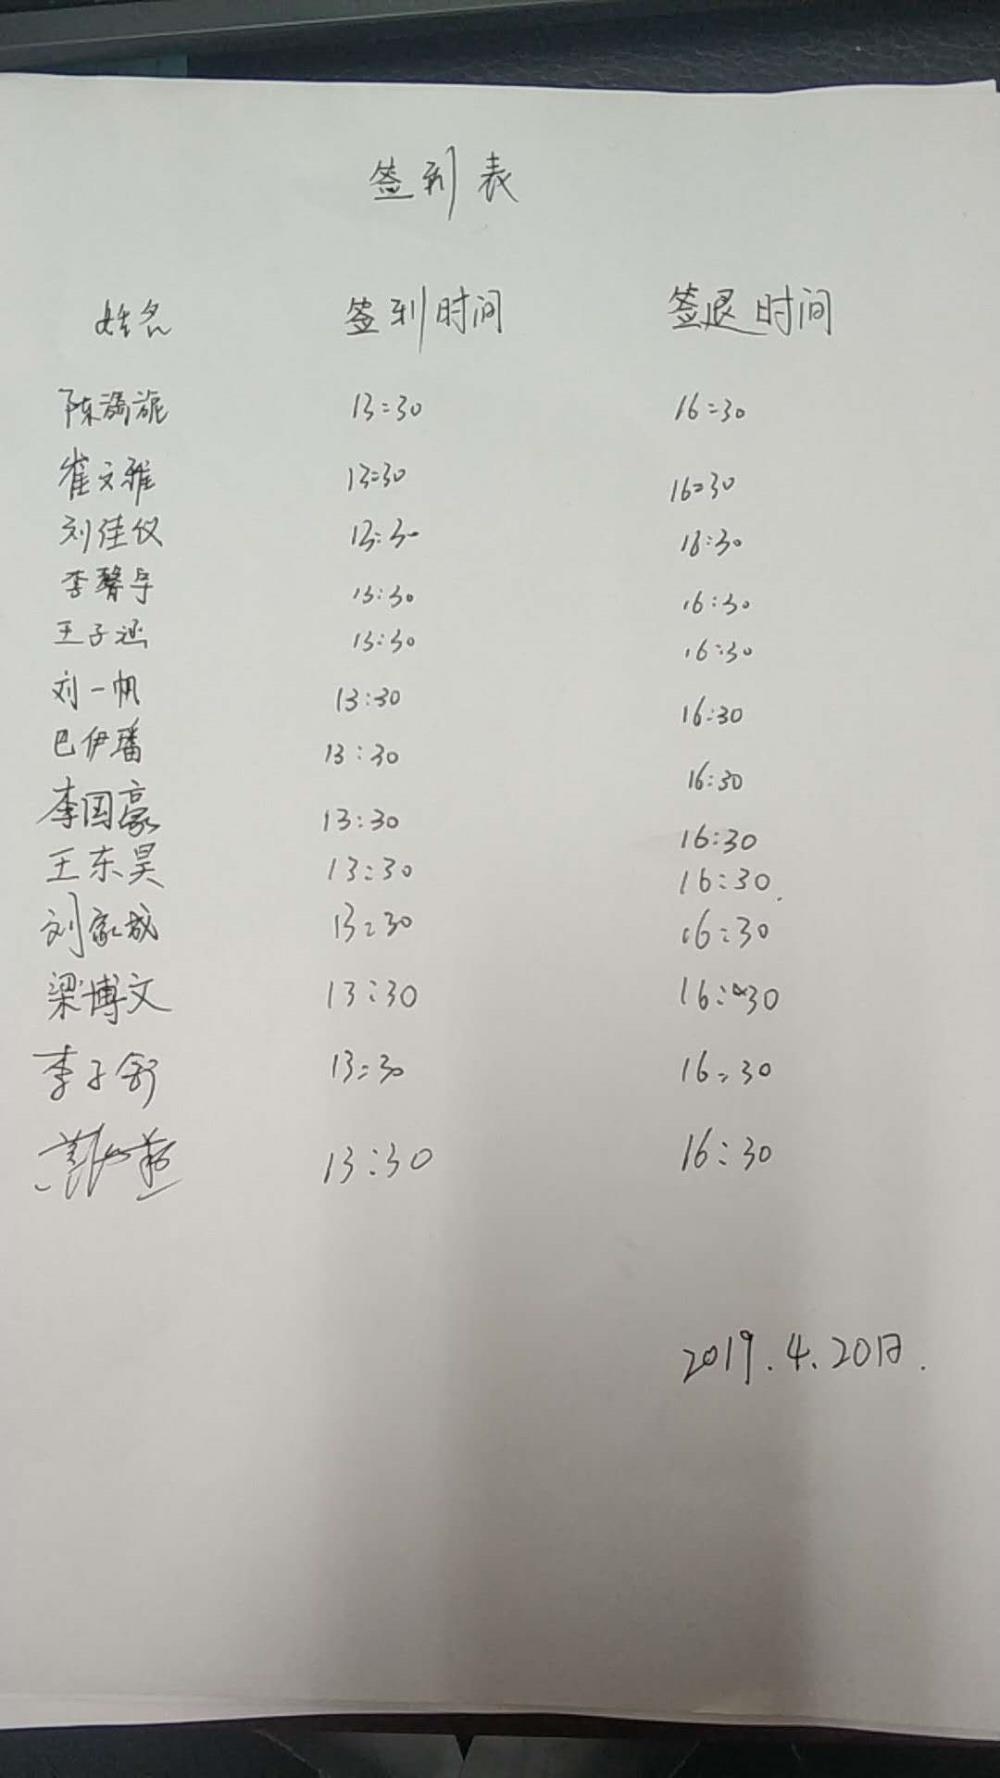 签到表
姓名 签到时间 签退时间
陈 旎 13:30 16:30
崔文雅 13:30 16:30
刘佳仪 13:30 16:30
李馨宇 13:30 16:30
王子涵 13:30 16:30
刘一帆 13:30 16:30
巴伊璠 13:30 16:30
李国豪 13:30 16:30
王东昊 13:30 16:30
刘家成 13:30 16:30
梁博文 13:30 16:30
李子舒 13:30 16:30
13:30 16:30
2019.4.20日.